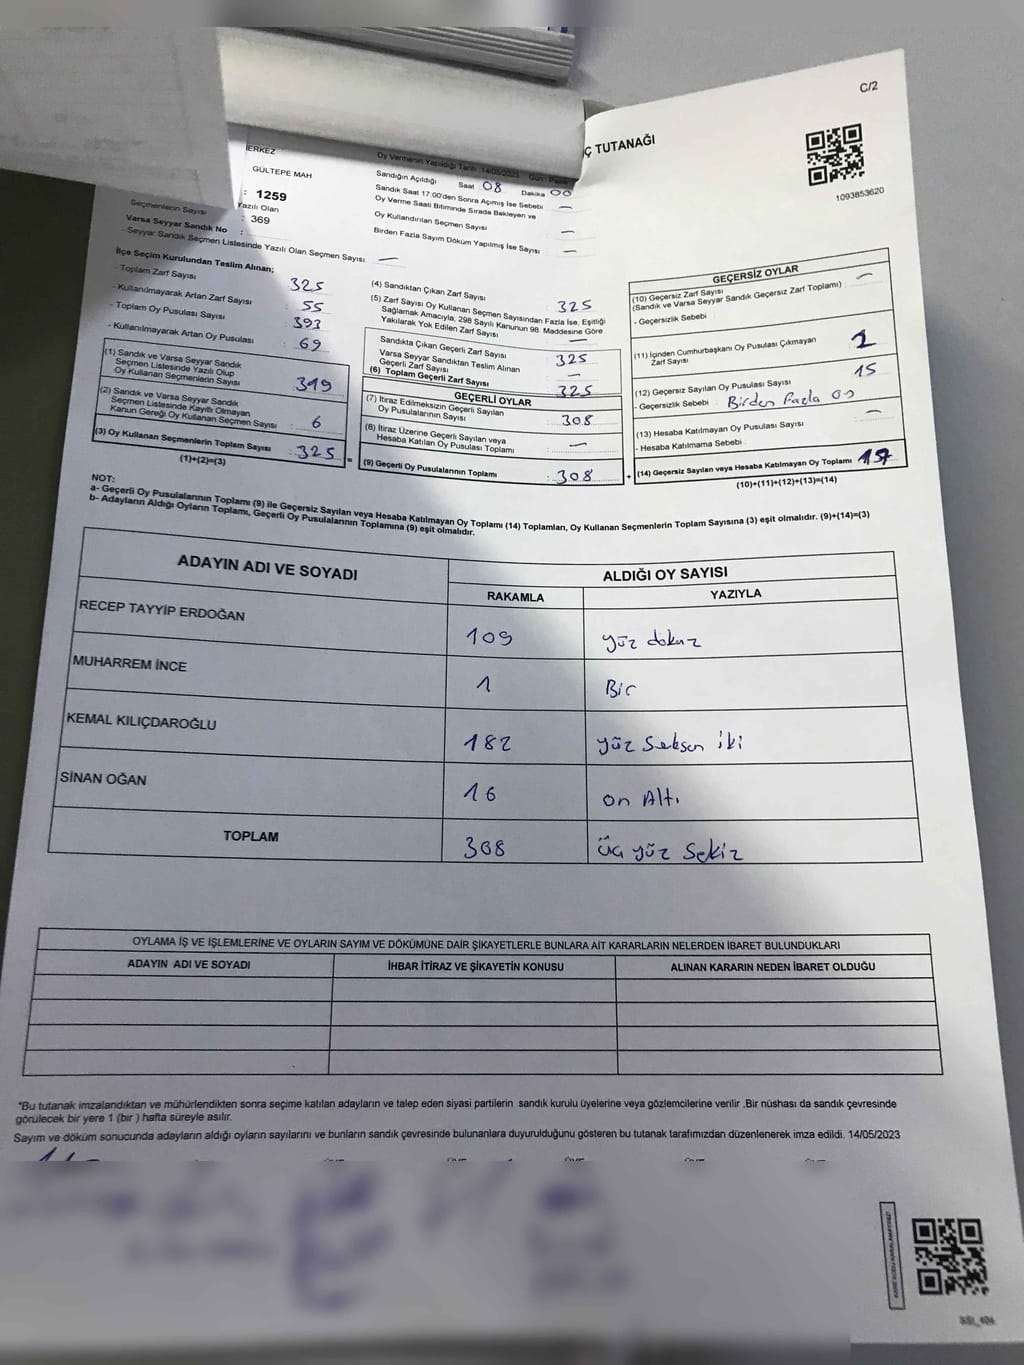 C/2
Ç TUTANAĞI
1093853620
ERKEZ
GÜLTEPE MAH
: 1259
Seçmenlerin Sayısı
Yazılı Olan
: 369
Varsa Seyyar Sandık No :
- Seyyar Sandık Seçmen Listesinde Yazılı Olan Seçmen Sayısı: —
Oy Vermenin Yapıldığı Tarih 14/05/2023 Gün
Sandığın Açıldığı Saat 08 Dakika 00
Sandık Saat 17.00'den Sonra Açımış İse Sebebi —
Oy Verme Saati Bitiminde Sırada Bekleyen ve
Oy Kullandırılan Seçmen Sayısı —
Birden Fazla Sayım Döküm Yapılmış İse Sayısı —
İlçe Seçim Kurulundan Teslim Alınan;
- Toplam Zarf Sayısı 325
- Kullanılmayarak Artan Zarf Sayısı 55
- Toplam Oy Pusulası Sayısı 393
- Kullanılmayarak Artan Oy Pusulası 69
(1) Sandık ve Varsa Seyyar Sandık
Seçmen Listesinde Yazılı Olup
Oy Kullanan Seçmenlerin Sayısı : 319
(2) Sandık ve Varsa Seyyar Sandık
Seçmen Listesinde Kayıtlı Olmayan
Kanun Gereği Oy Kullanan Seçmen Sayısı : 6
(3) Oy Kullanan Seçmenlerin Toplam Sayısı : 325
(1)+(2)=(3)
(4) Sandıktan Çıkan Zarf Sayısı : 325
(5) Zarf Sayısı Oy Kullanan Seçmen Sayısından Fazla İse, Eşitliği
Sağlamak Amacıyla, 298 Sayılı Kanunun 98. Maddesine Göre
Yakılarak Yok Edilen Zarf Sayısı —
Sandıkta Çıkan Geçerli Zarf Sayısı 325
Varsa Seyyar Sandıktan Teslim Alınan
Geçerli Zarf Sayısı —
(6) Toplam Geçerli Zarf Sayısı 325
GEÇERLİ OYLAR
(7) İtiraz Edilmeksizin Geçerli Sayılan
Oy Pusulalarının Sayısı : 308
(8) İtiraz Üzerine Geçerli Sayılan veya
Hesaba Katılan Oy Pusulası Toplamı : —
(9) Geçerli Oy Pusulalarının Toplamı : 308
GEÇERSİZ OYLAR
(10) Geçersiz Zarf Sayısı
(Sandık ve Varsa Seyyar Sandık Geçersiz Zarf Toplamı) : —
- Geçersizlik Sebebi :
(11) İçinden Cumhurbaşkanı Oy Pusulası Çıkmayan
Zarf Sayısı : 2
(12) Geçersiz Sayılan Oy Pusulası Sayısı 15
- Geçersizlik Sebebi : Birden Fazla oy
(13) Hesaba Katılmayan Oy Pusulası Sayısı : —
- Hesaba Katılmama Sebebi :
(14) Geçersiz Sayılan veya Hesaba Katılmayan Oy Toplamı 17
(10)+(11)+(12)+(13)=(14)
NOT:
a- Geçerli Oy Pusulalarının Toplamı (9) ile Geçersiz Sayılan veya Hesaba Katılmayan Oy Toplamı (14) Toplamları, Oy Kullanan Seçmenlerin Toplam Sayısına (3) eşit olmalıdır. (9)+(14)=(3)
b- Adayların Aldığı Oyların Toplamı, Geçerli Oy Pusulalarının Toplamına (9) eşit olmalıdır.
ADAYIN ADI VE SOYADI ALDIĞI OY SAYISI
RAKAMLA YAZIYLA
RECEP TAYYİP ERDOĞAN 109 yüz dokuz
MUHARREM İNCE 1 Bir
KEMAL KILIÇDAROĞLU 182 yüz seksen iki
SİNAN OĞAN 16 on Altı
TOPLAM 308 üç yüz Sekiz
OYLAMA İŞ VE İŞLEMLERİNE VE OYLARIN SAYIM VE DÖKÜMÜNE DAİR ŞİKAYETLERLE BUNLARA AİT KARARLARIN NELERDEN İBARET BULUNDUKLARI
ADAYIN ADI VE SOYADI İHBAR İTİRAZ VE ŞİKAYETİN KONUSU ALINAN KARARIN NEDEN İBARET OLDUĞU
*Bu tutanak imzalandıktan ve mühürlendikten sonra seçime katılan adayların ve talep eden siyasi partilerin sandık kurulu üyelerine veya gözlemcilerine verilir .Bir nüshası da sandık çevresinde
görülecek bir yere 1 (bir ) hafta süreyle asılır.
Sayım ve döküm sonucunda adayların aldığı oyların sayılarını ve bunların sandık çevresinde bulunanlara duyurulduğunu gösteren bu tutanak tarafımızdan düzenlenerek imza edildi. 14/05/2023